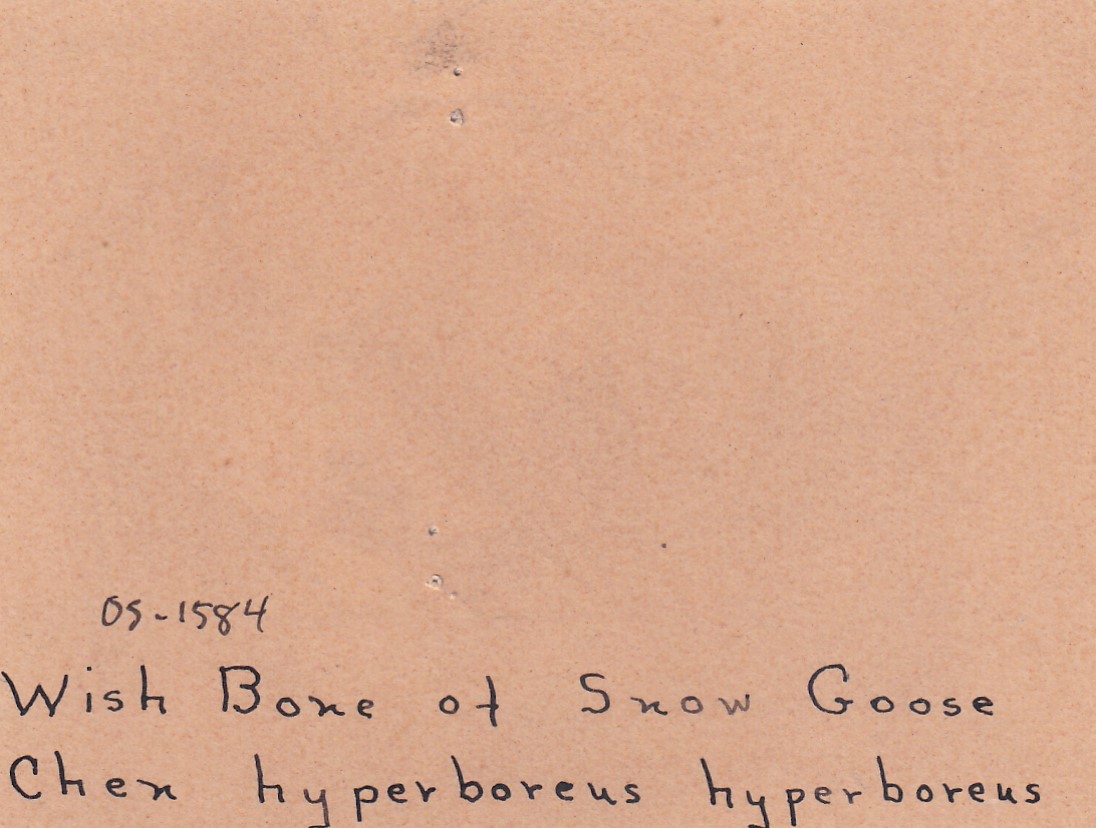 OS-1584
Wish Bone of Snow Goose
Chen hyperboreus hyperboreus